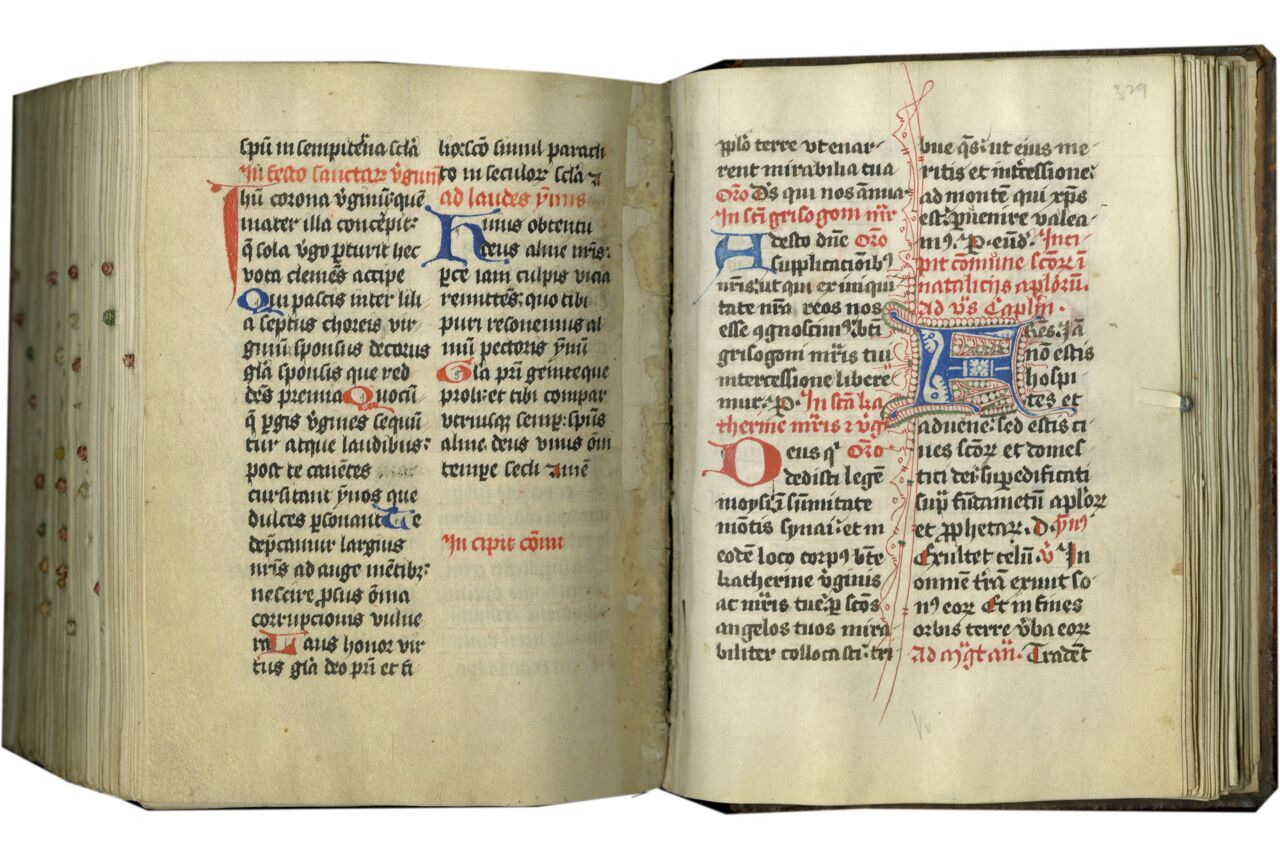 spū in sempitēna sclā
In festo sanctaꝝ v̓ginū
Jhū corona v̓ginū quē
mater illa concēpit:
q̄ sola v̓go ꝑturit hec
vota clemēs accipe
Qui pascis inter lili
a septus choreis vir
ginū sponsus decorus
glā sponsis que red
dēs premia Quocū
q̄ ꝑgis v̓gines sequū
tur atque laudibus:
post te canētes
cursitant ȳnos que
dulces ꝑsonant Te
dep̄camur largius
nr̄is ad auge mētibꝫ
nescire ꝓsus ōīa
corrupcionis vulne
ra Laus honor vir
tus glā deo pr̄i et fi
lio: scō simul paracli
to in seculoꝝ sclā ⁊
ad laudes ȳnus
Huius obtentu
deus alme nr̄is:
ꝑce iam culpis vicia
remittēs: quo tibi
puri resonemus al
mū pectoris ȳnū
Gla pr̄i geniteque
proli: et tibi compar
vtriusqꝫ semꝑ: spūs
alme deus vnus ōm
tempe secli amē
In cipit cōmu
329
pplō terre vt enar-
rent mirabilia tua
Oro Ds̄ qui nos annua-
In scī grisogoni mr̄
Adesto dn̄e Oro
supplicatioībꝰ
nr̄is: ut qui ex iniqui
tate nr̄a reos nos
esse ꝯgnoscimꝰ bt̄i
grisogoni mr̄is tui
intercessione libere
mur. P. In stā ka
therine mr̄is ⁊ v̓gīs
Deus q̄ Oro
dedisti legē
moysi ī sūmitate
mōtis synai: et in
eodē loco corpꝰ bt̄e
katherine v̓ginis
ac mr̄is tue: ꝑ scōs
angelos tuos mira-
biliter collocasti: tri-
bue qs̄: ut eius me-
ritis et int̓cessione:
ad montē qui xp̄s
est: ꝑuenire valea-
mꝰ. P. eūd. Inti-
pit cōmune scōꝝ ī
natalitijs aplōrū.
Ad vs̄ Caplm̄.
Fr̄es: Jā
nō estis
hospi
tes et
aduene: sed estis ci
ues scōꝝ et domes
tici dei: suꝑedificati
supͣ fūdametū aplōꝝ
et ꝓphetaꝝ. D. ymꝰ
Exultet celū. v̄ In
omnē trā exiuit so-
nꝰ eoꝝ Et in fines
orbis terre v̓ba eoꝝ
Ad mg̓t an̄. Tradēt